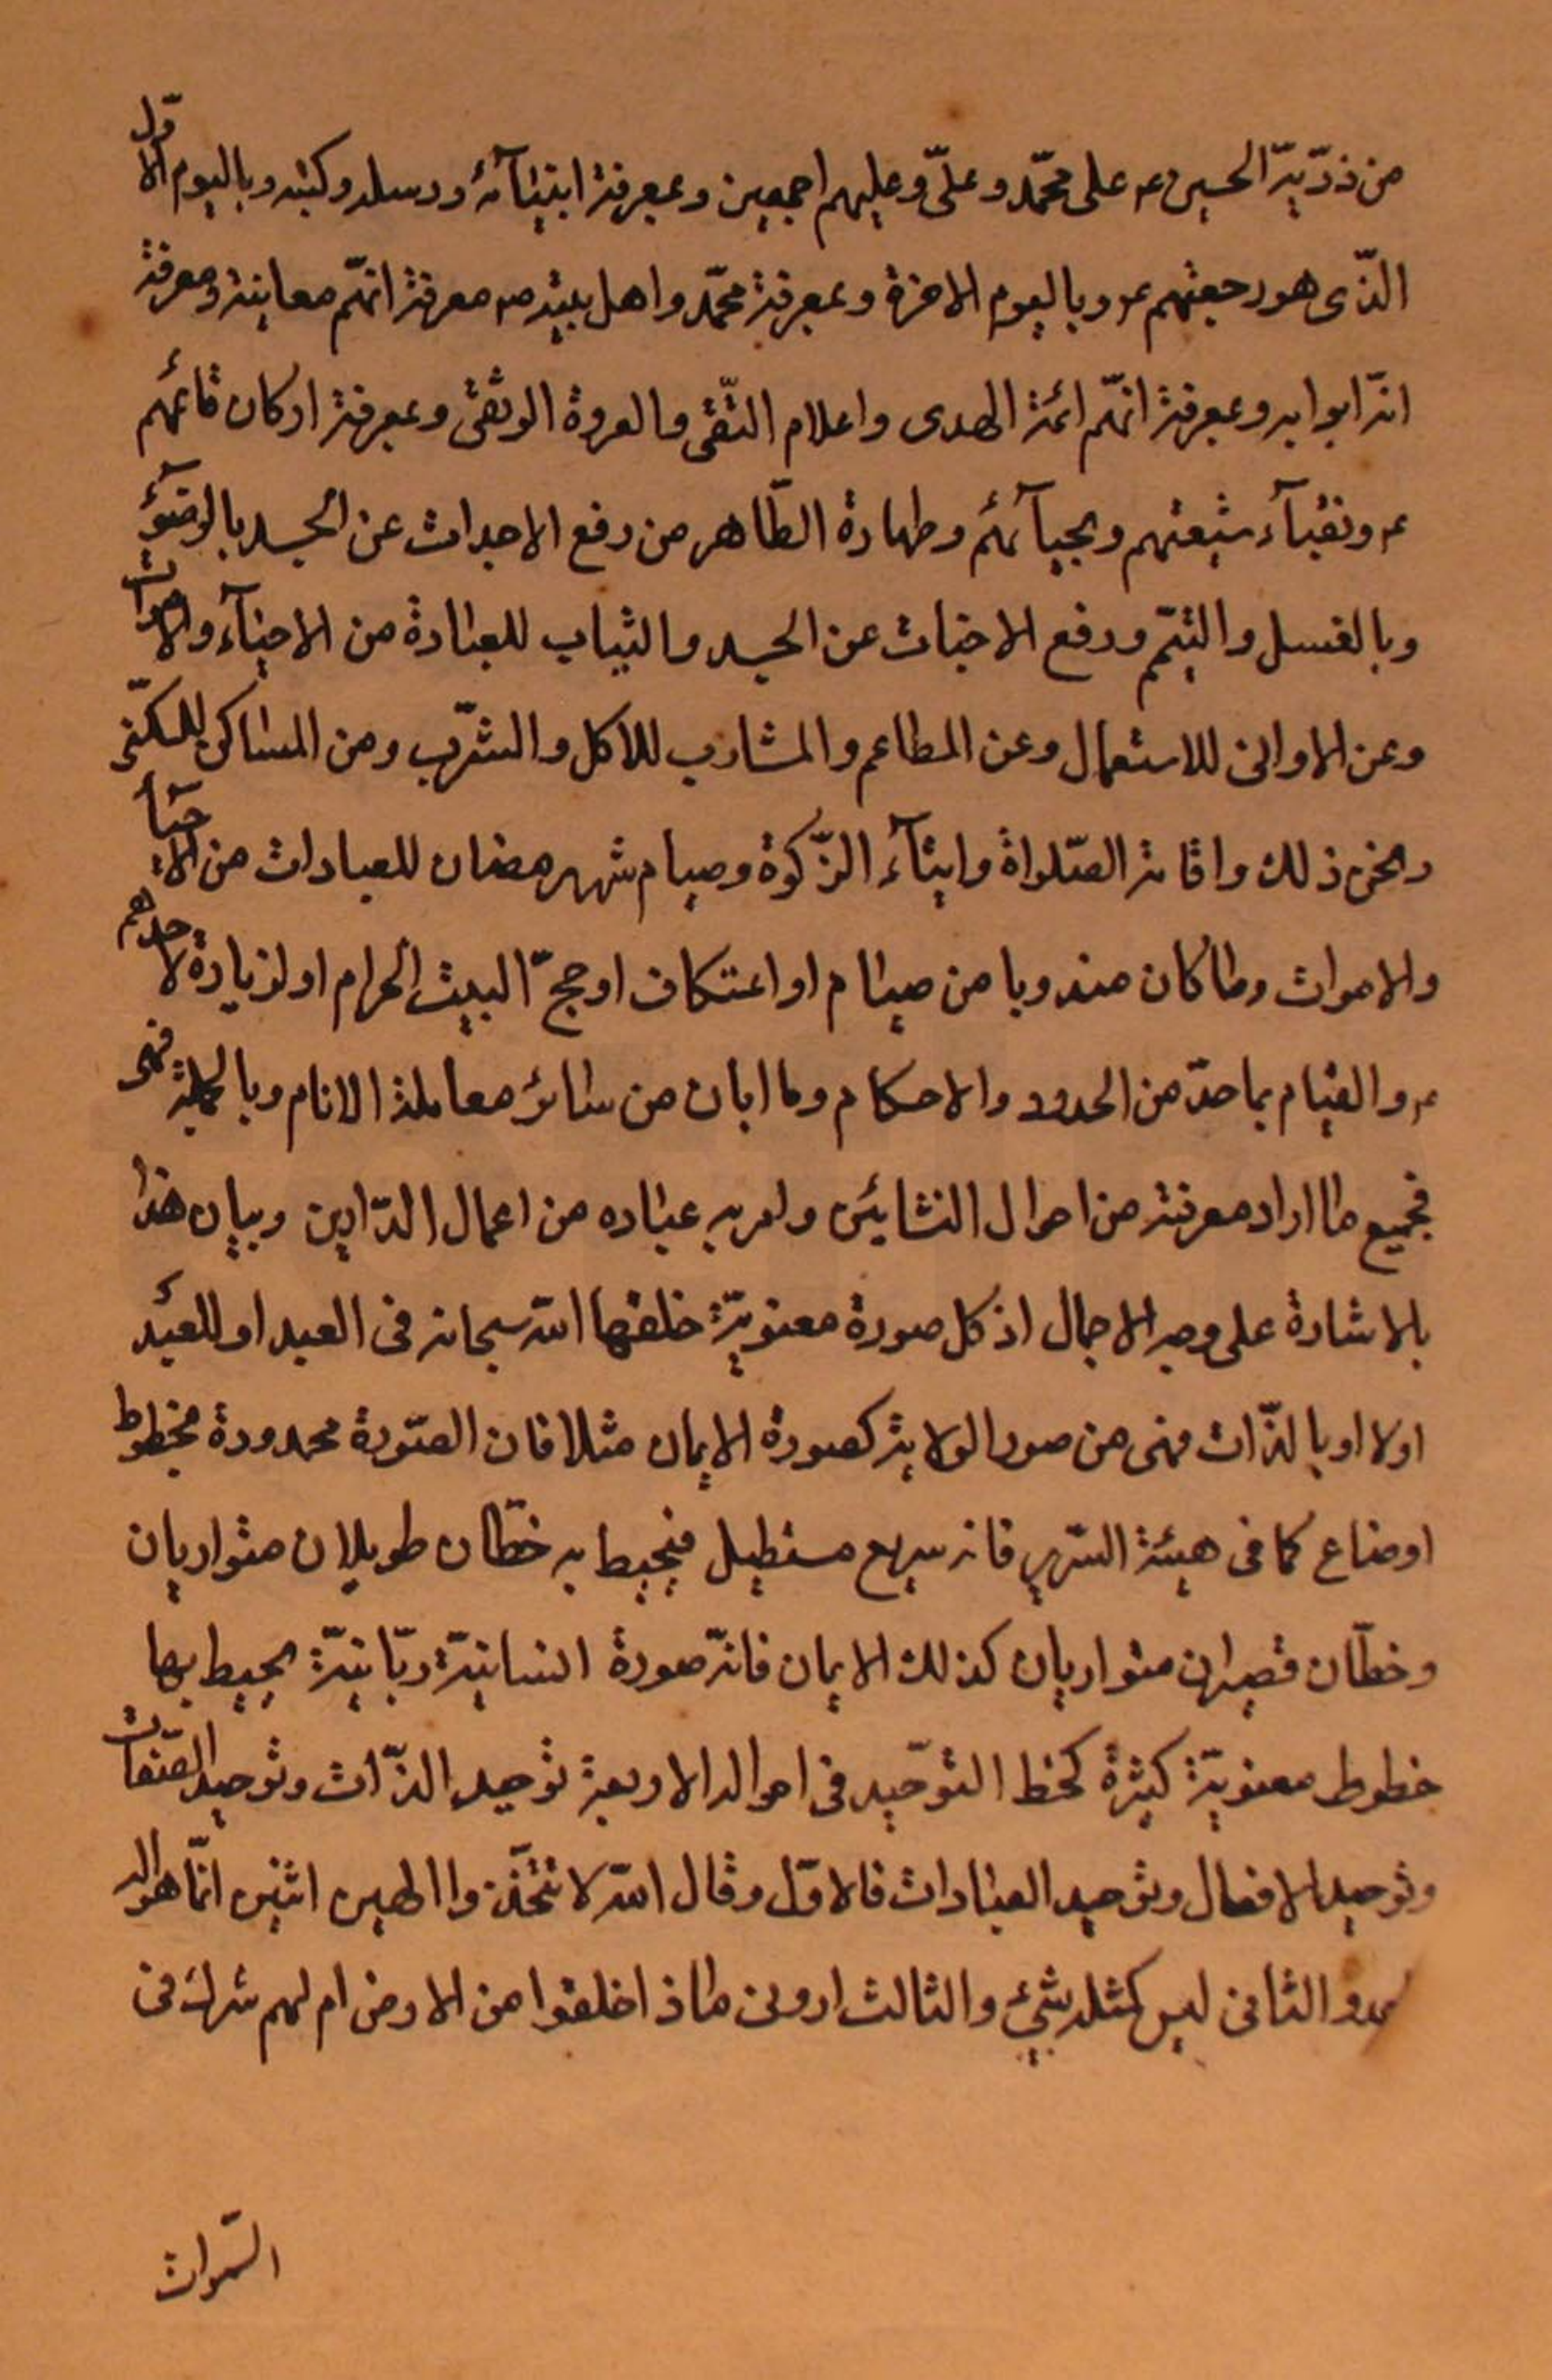 من ذرّيّة الحسين ع على محمّد وعليّ وعليهم اجمعين وبمعرفة انبيائه ورسله وكتبه وباليوم الاوّل
الذّى هو رجعتهم ع وباليوم الاخرة وبمعرفة محمّد واهل بيته ص معرفة انهّم معاينة ومعرفة
انّه ابوابه وبمعرفة انهّم ائمّة الهدى واعلام التّقى والعروة الوثقى وبمعرفة اركان قائمهم
ع ونقبآء شيعتهم ونجبآئهم وطهارة الظّاهر من رفع الاحداث عن الجسد بالوضوء
وبالغسل والتيمّم ورفع الاخباث عن الجسد والثياب للعبادة من الاحيآء والاموات
وعن الاوانى للاستعمال وعن المطاعم والمشارب للاكل والشّرب ومن المساكن للسّكنى
ونحو ذلك واقامة الصّلواة وايتآء الزّكوة وصيام شهر رمضان للعبادات من الاحيآء
والاموات وما كان مندوبا من صيام او اعتكاف او حجّ البيت الحرام او لزيارة لاحدهم
ع والقيام بما حدّ من الحدود والاحكام وما ابان من سائر معاملة الانام وبالجملة فهى
فجميع ما اراد معرفته من احوال النشاتين وامر به عباده من اعمال الدّارين وبيان هذا
بالاشارة على وجه الاجمال اذ كل صورة معنويّة خلقها اللّه سبحانه فى العبد او للعبد
اولا او بالذّات فهى من صور الولاية كصورة الايمان مثلا فان الصّورة محدودة بخطوط
اوضاع كما فى هيئة السّرير فانه مربع مستطيل فيحيط به خطّان طويلان متوازيان
وخطّان قصيران متوازيان كذلك الايمان فانّه صورة انسانيّة ربّانيّة يحيط بها
خطوط معنويّة كثيرة كخط التوحّيد فى احواله الاربعة توحيد الذّات وتوحيد الصّفات
وتوحيد الافعال وتوحيد العبادات فالاوّل وقال اللّه لا تتّخذوا الهين اثنين انّما هو اله
والثانى ليس كمثله شيء والثالث ارونى ماذا خلقوا من الارض ام لهم شرك فى
السّموات